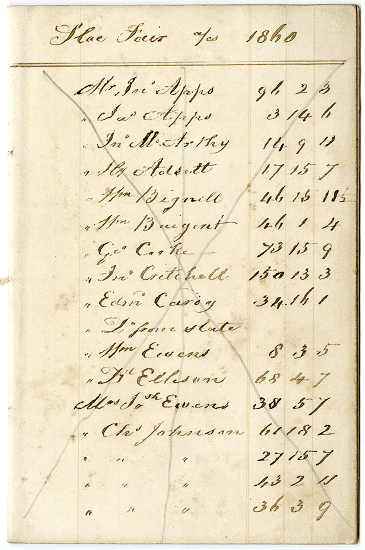 Slae Fair a/cs 1860
Mr Jnº Apps 96 2 3
" Jas Apps 3 14 6
" Jnº McArthy 14 9 11
" Hy Adsett 17 15 7
" Wm Bignell 46 15 11½
" Wm Baigent 46 1 4
" Geº Cooke 73 15 9
" Jnº Critchell 150 13 3
" Edmd Carey 34 16 1
" Dº from slate
" Wm Ewens 8 3 5
" Fk Elleson 68 4 7
Mrs Josh Ewens 38 5 7
" Chs Johnson 61 18 2
" " " 27 15 7
" " " 43 2 11
" " " 36 3 9